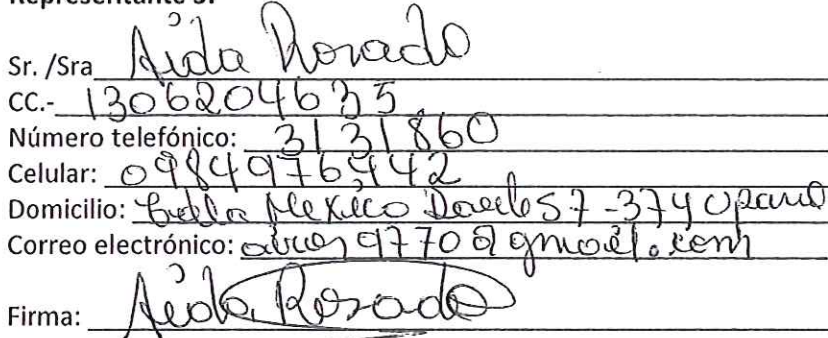 Representante 3:
Sr. /Sra Aida Rosado
CC.- 1306204635
Número telefónico: 3131860
Celular: 0984976442
Domicilio: Mexico S7-374
Correo electrónico: gmail.com
Firma: Aida Rosado